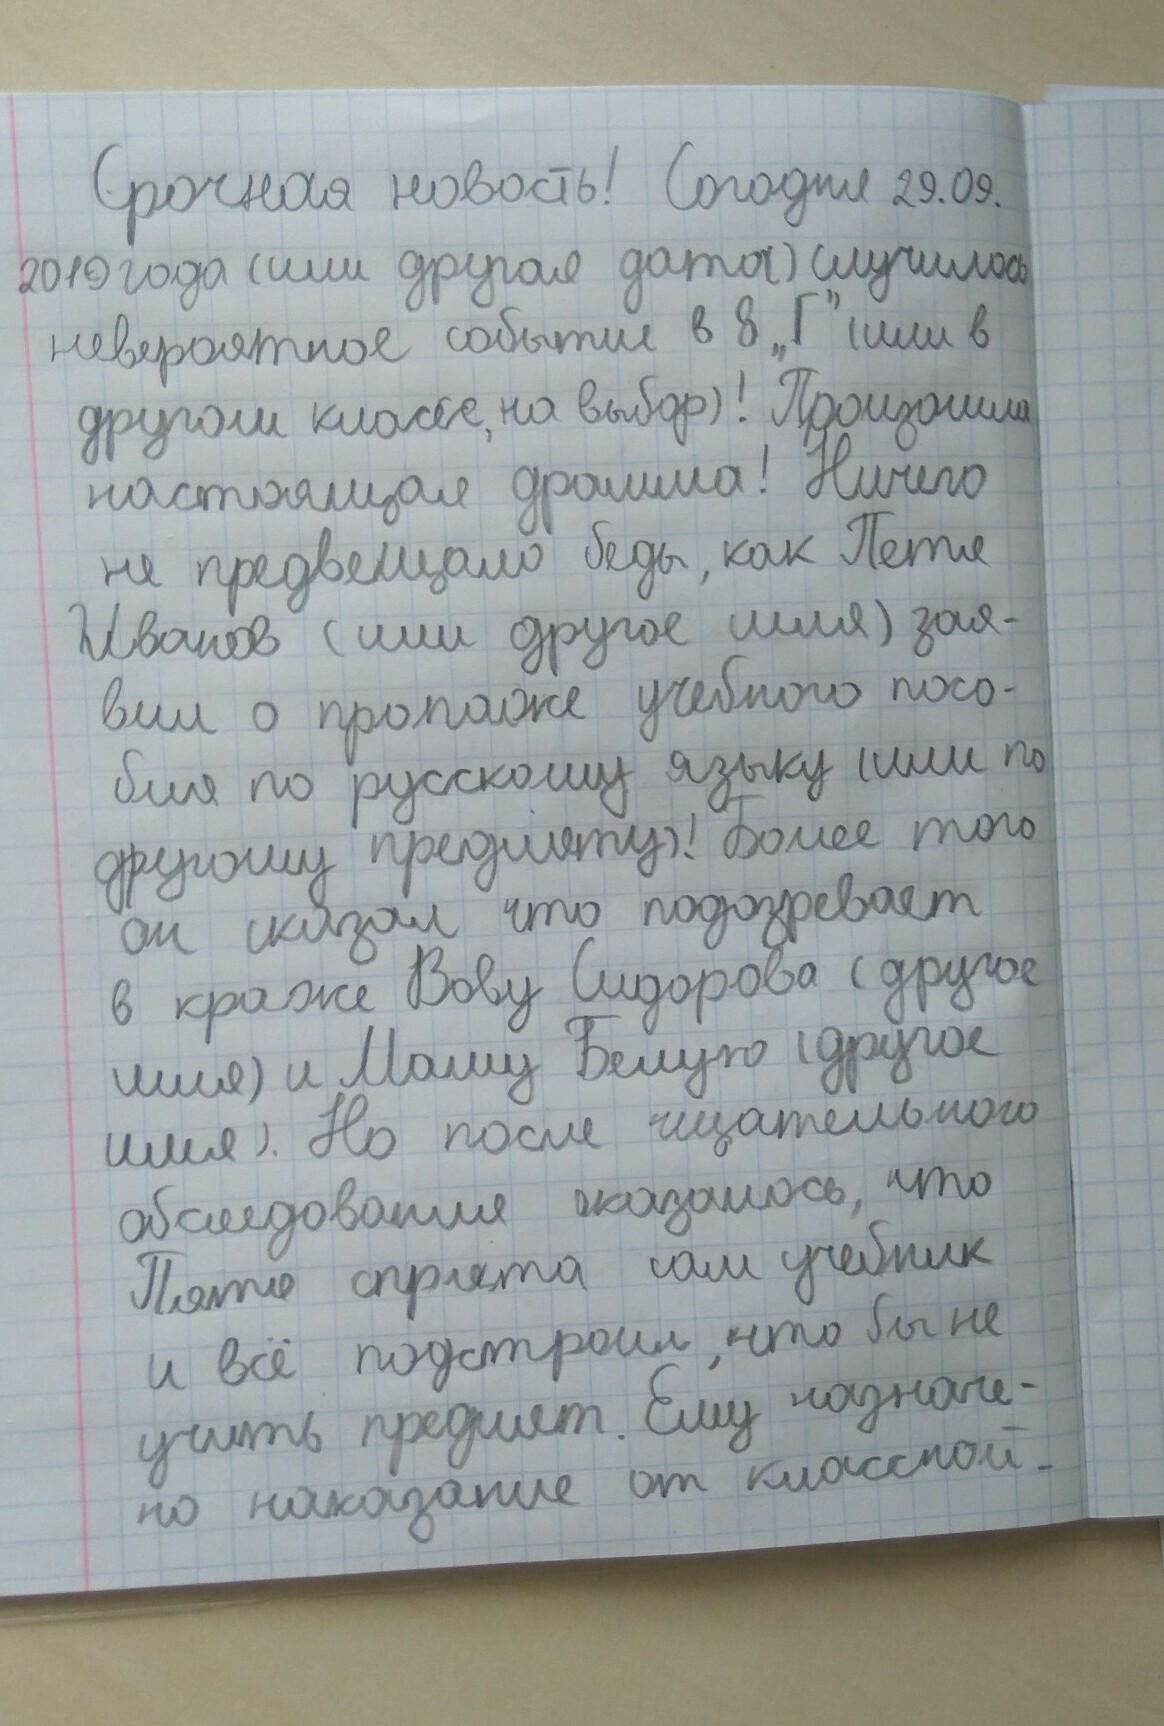 Срочная новость! Сегодня 29.09.
2019 года (или другая дата) случилось
невероятное событие в 8 „Г” (или в
другом классе, на выбор)! Произошла
настоящая драмма! Ничего
не предвещало беды, как Петя
Иванов (или другое имя) зая-
вил о пропаже учебного посо-
бия по русскому языку (или по
другому предмяту)! Более того
он сказал что подозревает
в краже Вову Сидорова (другое
имя) и Машу Белую (другое
имя). Но после тщательного
обследования оказалось, что
Пятя спрята сам учебник
и всё подстроил, что бы не
учить предмят. Ему назначе-
но наказание от классной-